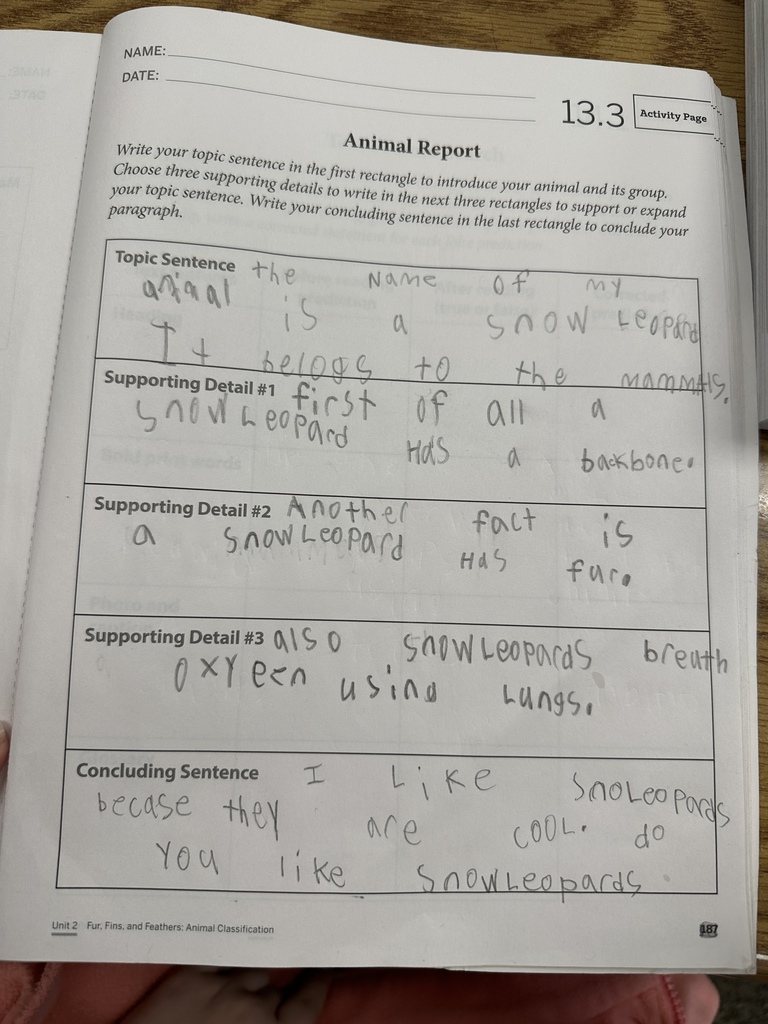 NAME:
DATE:
13.3 Activity Page
Animal Report
Write your topic sentence in the first rectangle to introduce your animal and its group.
Choose three supporting details to write in the next three rectangles to support or expand
your topic sentence. Write your concluding sentence in the last rectangle to conclude your
paragraph.
Topic Sentence the Name of my
animal is a snow Leopard
It belogs to the mammals.
Supporting Detail #1 first of all a
snow Leopard Has a backbone.
Supporting Detail #2 Another fact is
a snow Leopard Has fur.
Supporting Detail #3 also snow Leopards breath
oxyeen using Lungs.
Concluding Sentence I Like snoLeopards
becase they are cool. do
you like snowLeopards.
Unit 2 Fur, Fins, and Feathers: Animal Classification
187